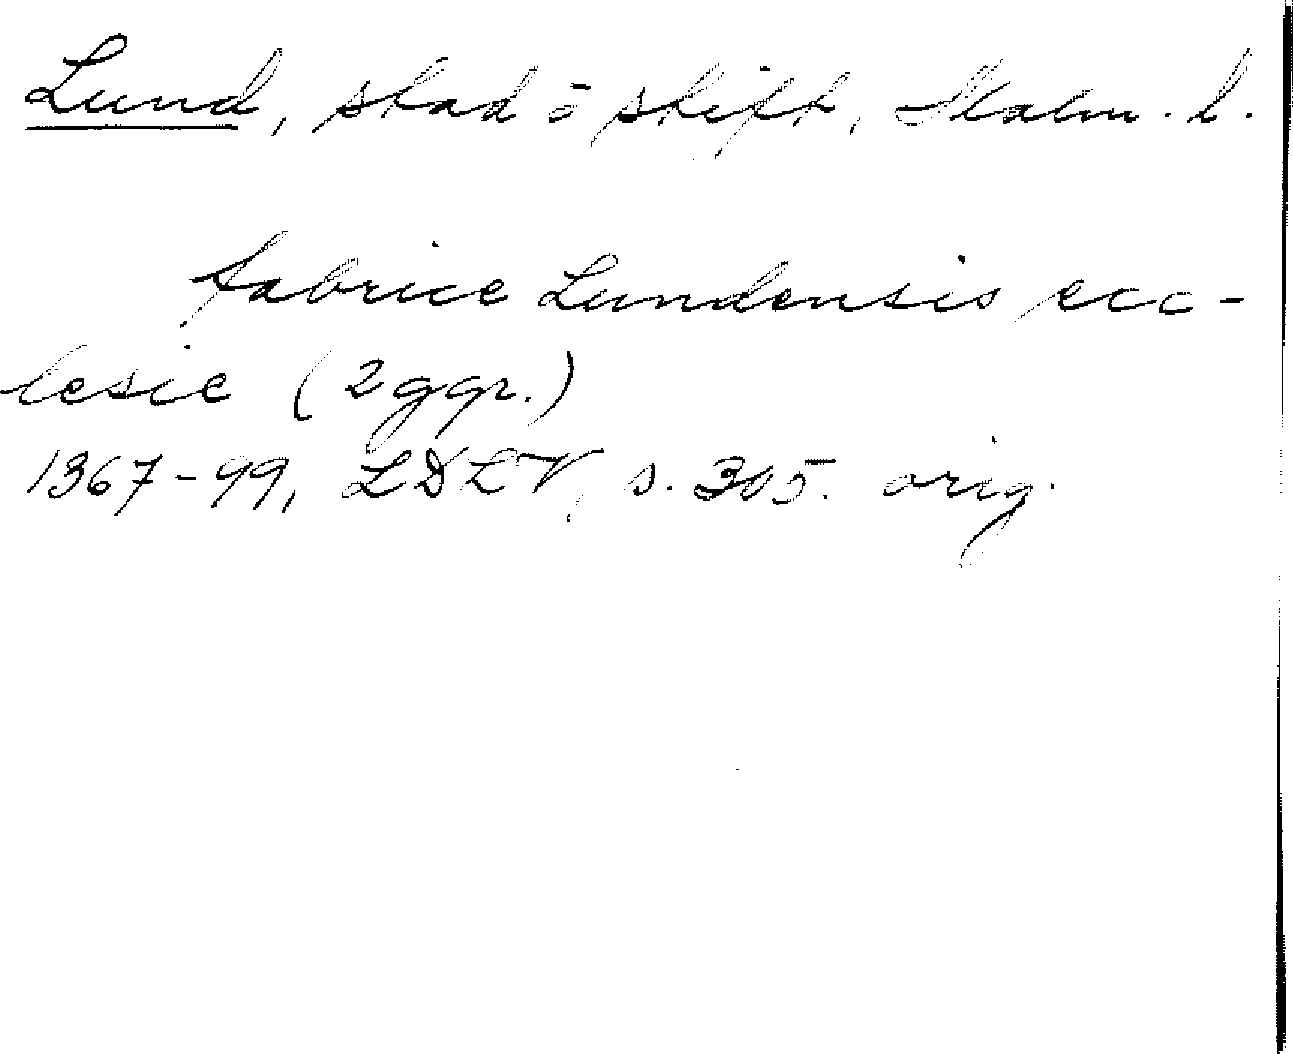 Lund, stad o stift, Malm. l.
fabrice Lundensis ecc-
lesie (2 ggr.)
1367-99, LDLV, s. 305. orig.